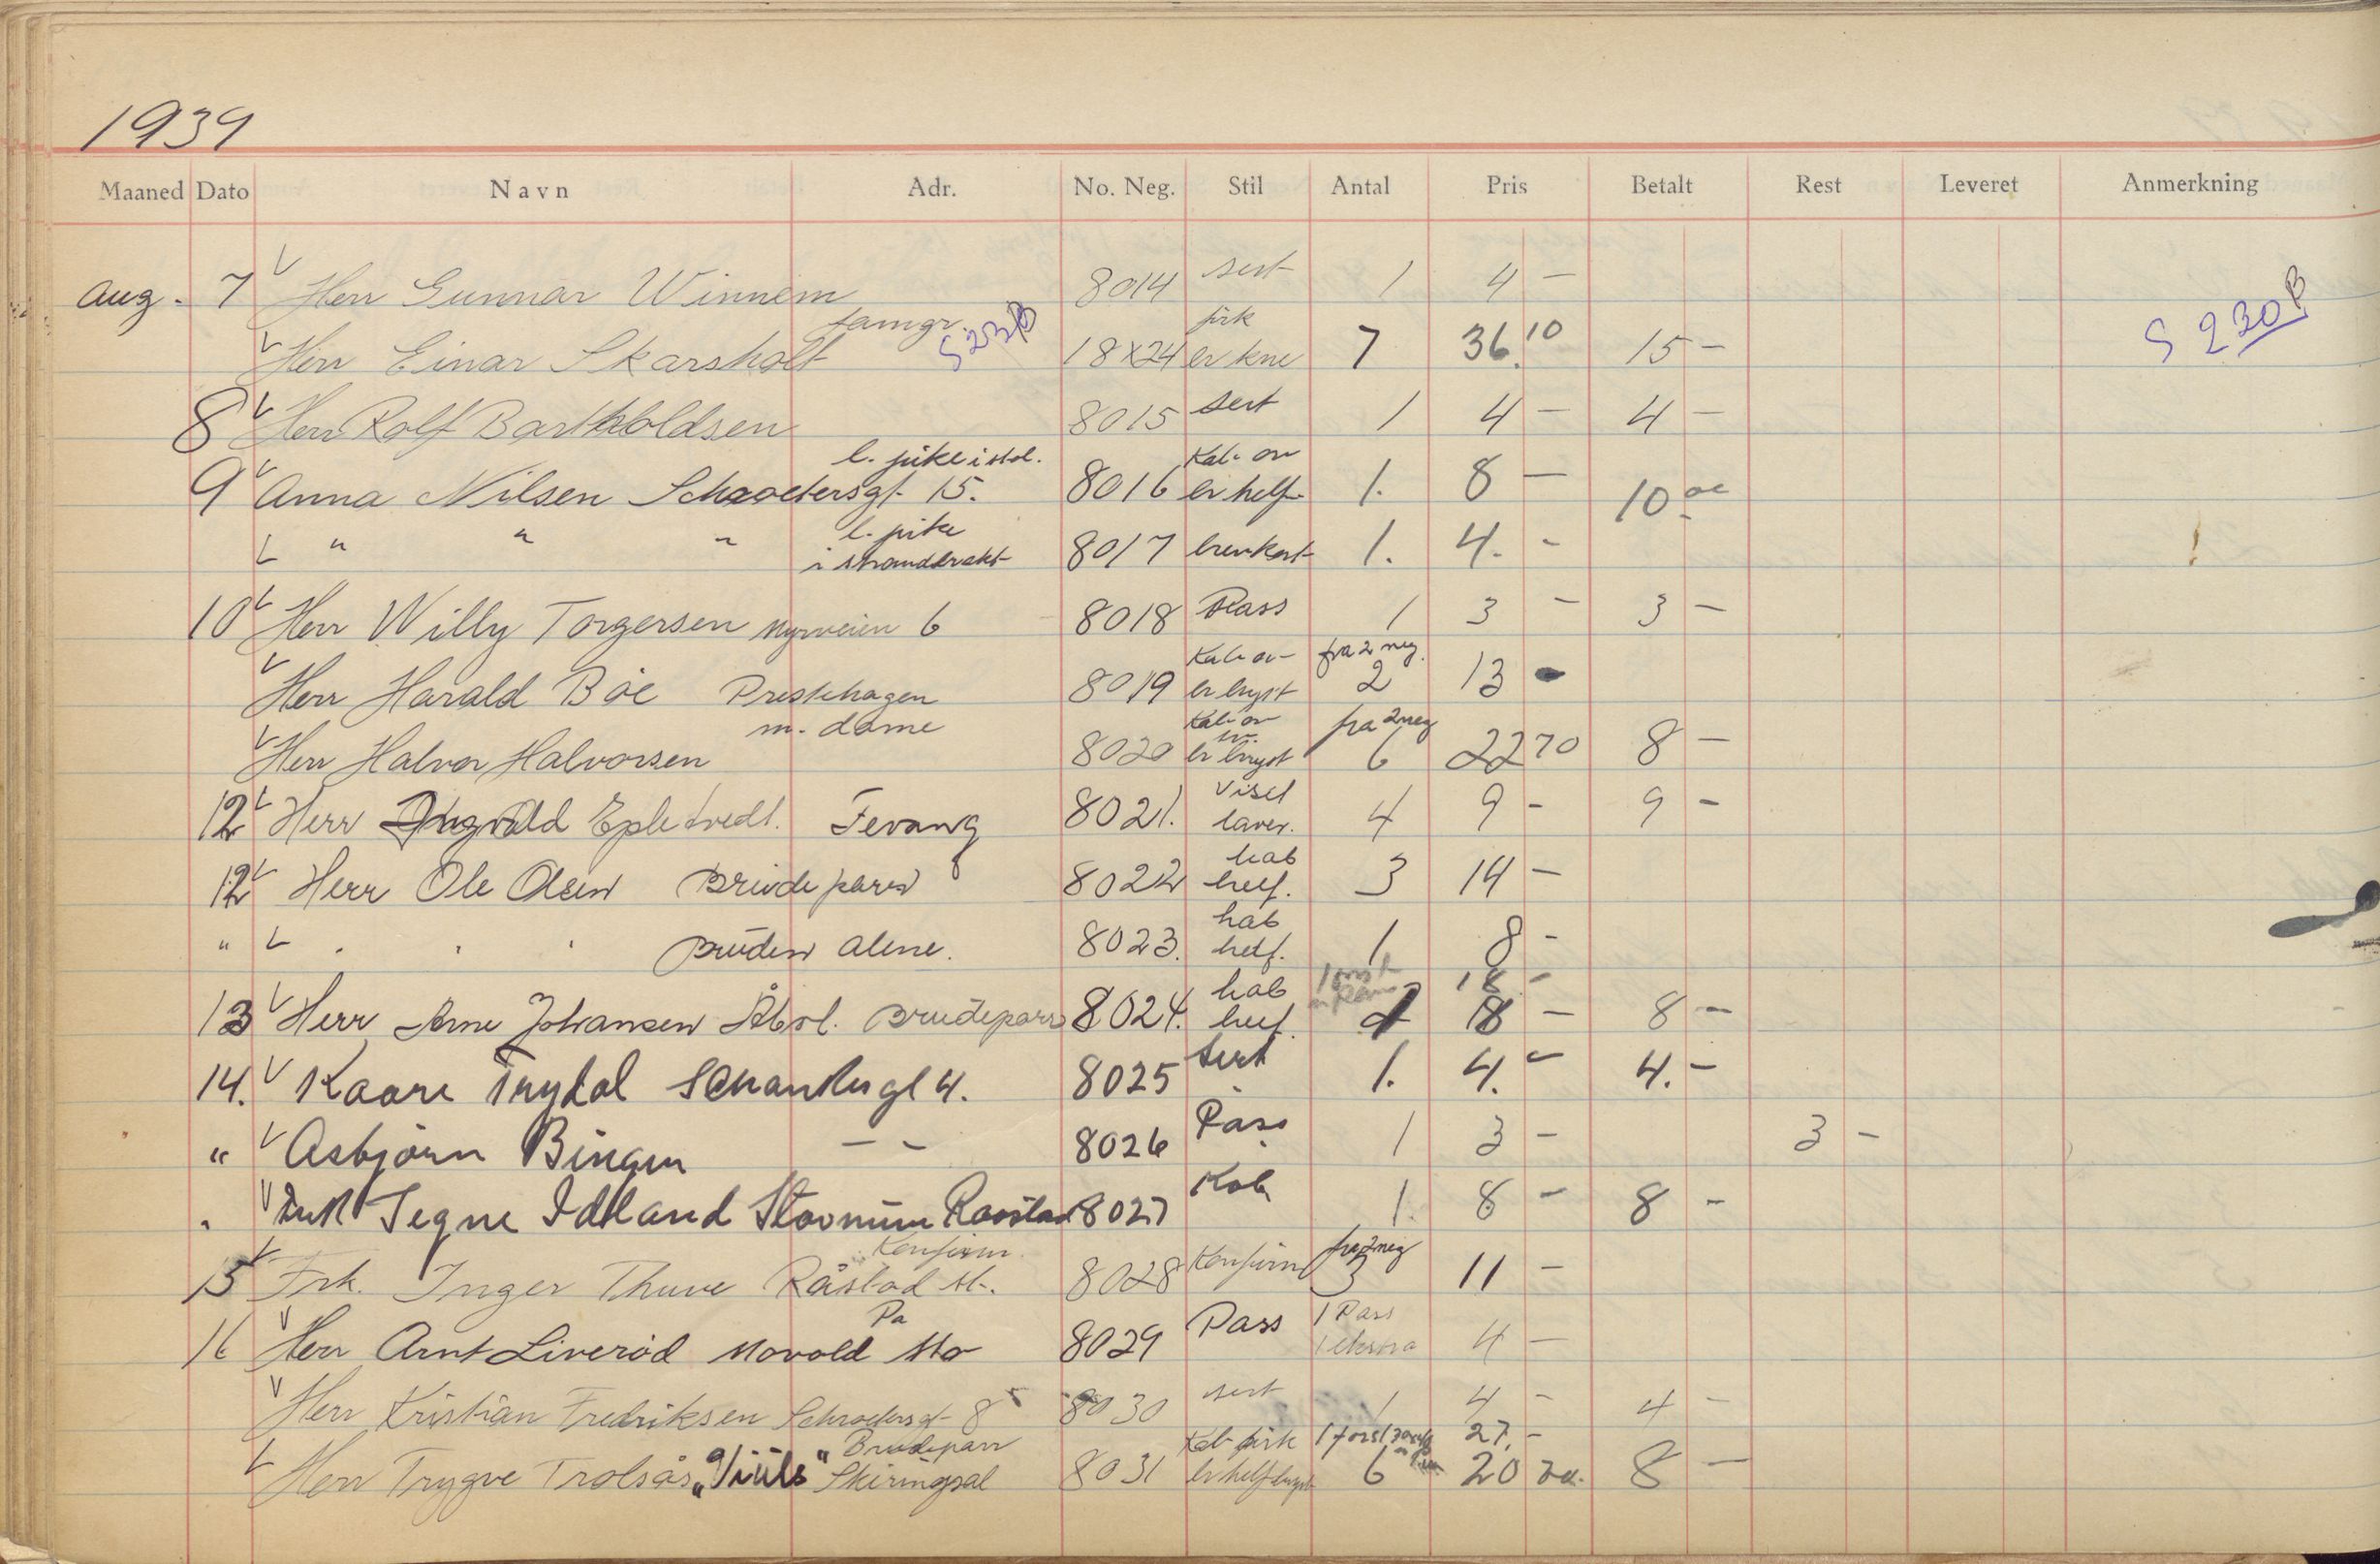 1939
Maaned Dato Navn Adr. No. Neg. Stil Antal Pris Betalt Rest Leveret Anmerkning
Aug. 7 Herr Gunnar Winnem 8014 sert 1 4 –
famgr. S 230 B
Herr Einar Skarsholt 18x24 er kne 7 36.10 15 – S 230 B
8 Herr Rolf Bartholdsen 8015 sert 1 4 – 4 –
l. pike i stol. Kab. or
9 Anna Nilsen Schroetersgt. 15. 8016 br helf. 1. 8 – 10
l. pike
" " " i stranddrakt 8017 brevkort 1. 4. –
10 Herr Willy Torgersen Myrveien 6 8018 Pass 1 3 – 3 –
Kab. or fra 2 neg.
Herr Harald Bøe Prestehagen 8019 br bryst 2 13
m. dame Kab. or fra 2 neg
Herr Halvor Halvorsen 8020 br bryst 6 22 70 8 –
12 Herr Ingvald Epletvedt. Fevang 8021. Visit 4 9 – 9 –
12 Herr Ole Olsen Brudepar 8022 kab helf. 3 14 –
" Bruden alene. 8023. kab helf. 1 8 –
18 –
13 Herr Arne Johansen Brudepar 8024. kab helf. 18 – 8 –
14. Kaare Trydal 4. 8025 sert 1. 4. – 4. –
" Asbjørn Bingen – – 8026 Pass 1 3 – 3 –
Tegne Idland Raastad 8027 Kab 1. 8 – 8 –
Konfirm. fra 2 neg
15 Frk. Inger Thuve Råstad st. 8028 Konfirm 3 11 –
Pa 1 Pass
16 Herr Arnt Liverød 8029 Pass 1 ekstra 4 –
Herr Kristian Fredriksen Schroetersgt. 8 8030 sert 1 4 – 4 –
Brudeparr 27. –
Herr Trygve Trolsås Skiringsal 8031 6 20 8 –